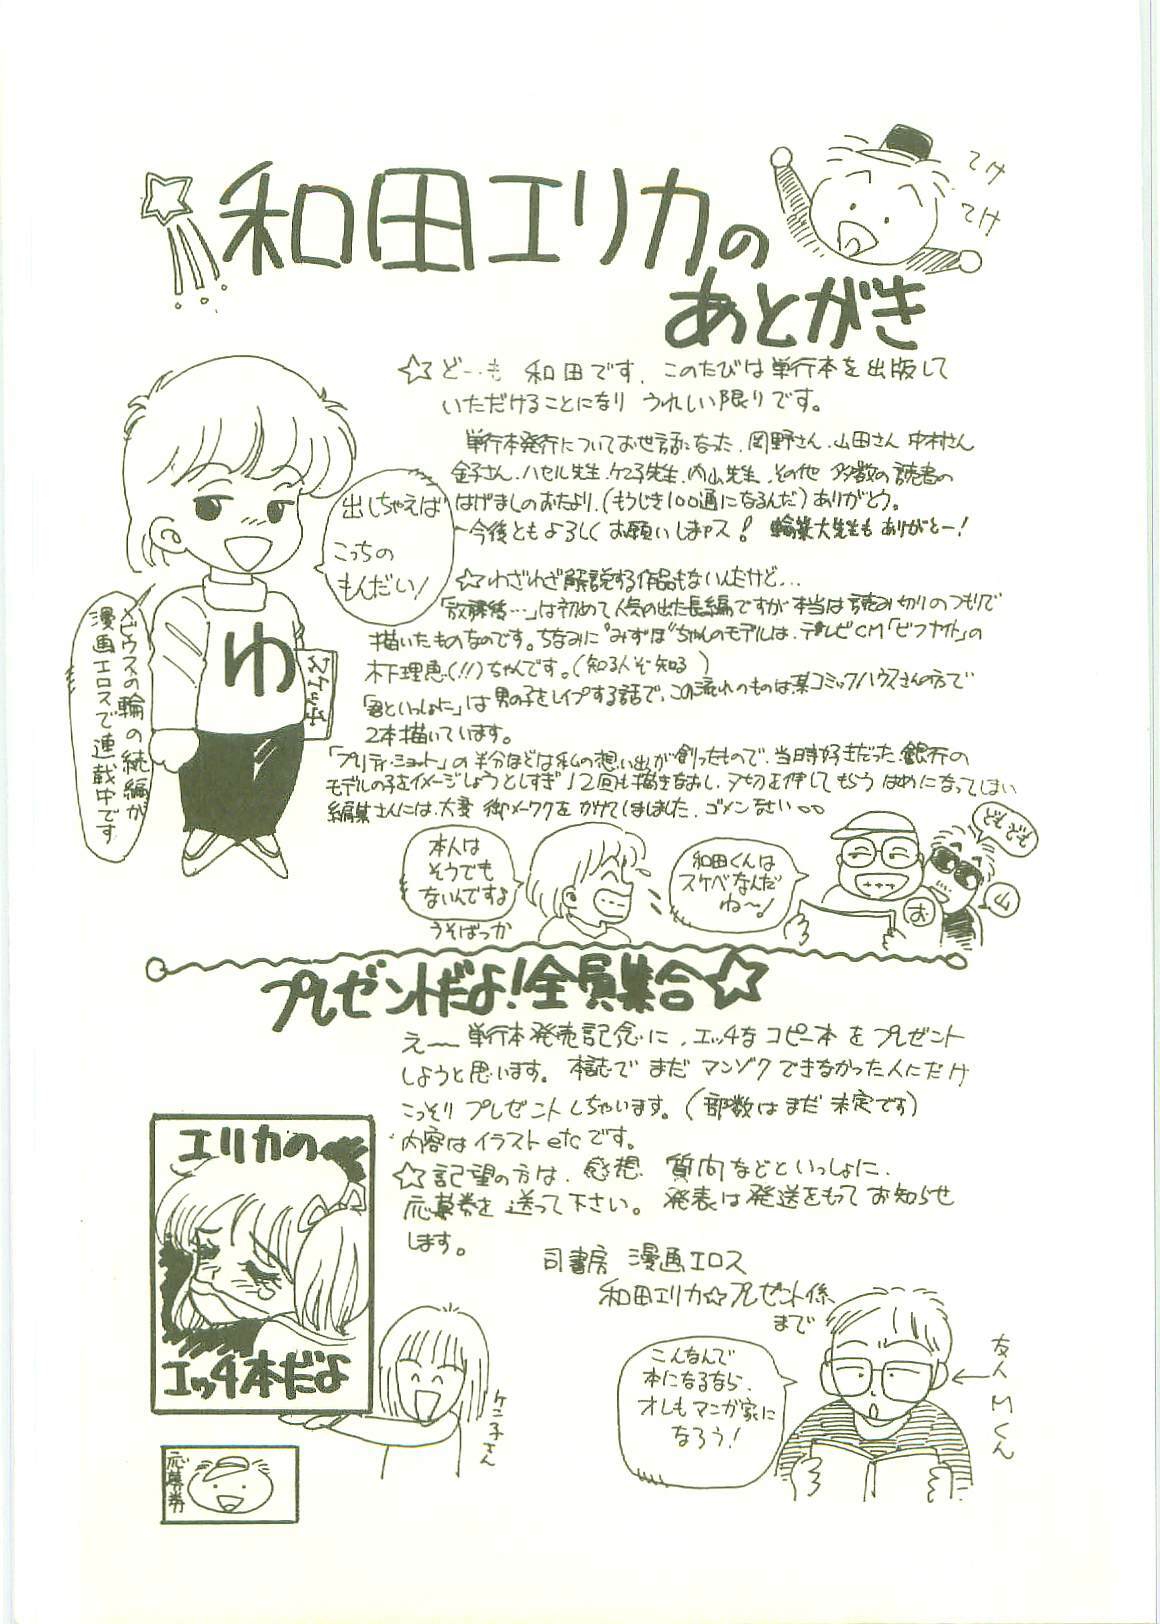 和田エリカの
あとがき
てけ
てけ
☆ど…も 和田です。このたびは単行本を出版して
いただけることになり うれしい限りです。
単行本発行についてお世話になった、岡野さん、山田さん 中村さん
金子さん、ハセル先生、ケン子先生、内山先生、その他 多数の読者の
はげましのおたより、(もうじき100通になるんだ)ありがとう。
～今後ともよろしく お願いしまァス! 輪業大先生も ありがとー!
出しちゃえば
こっちの
もんだい!
ゆ
スケッチ
メビウスの輪の続編が
漫画エロスで連載中です
☆わざわざ解説する作品もないんだけど…
「放課後…」は初めて人気の出た長編ですが本当は読み切りのつもりで
描いたものなのです。ちなみに“みずほ”ちゃんのモデルは、テレビCM「ビフナイト」の
木下理恵(!!)ちゃんです。(知る人ぞ知る)
「君といっしょに」は男の子をレイプする話で、この流れのものは某コミックハウスさんの方で
2本描いています。
「プリティ・ショット」の半分ほどは私の想い出が創ったもので、当時好きだった 銀行の
モデルの子をイメージしようとしすぎ12回も描きなおし、〆切を押してもう はめになってしまい
編集さんには、大変 御メーワクを かけてしまいました。ゴメンなさい
本人は
そうでも
ないんですよ
うそばっか
和田くんは
スケベなんだ
ね～!
ども ども
お
山
プレゼントだよ!全員集合☆
え～ 単行本発売記念に、エッチな コピー本 を プレゼント
しようと思います。本誌で まだ マンゾク できなかった人にだけ
こっそり プレゼントしちゃいます。(部数は まだ 未定です)
内容は イラスト etc です。
☆記望の方は、感想 質向などといっしょに、
応募券を 送って下さい。発表は発送をもって お知らせ
します。
司書房 漫画エロス
和田エリカ☆プレゼント係
まで
エリカの
エッチ本だよ
ケン子さん
応募券
こんなんで
本になるなら、
オレもマンガ家に
なろう!
友人Mくん